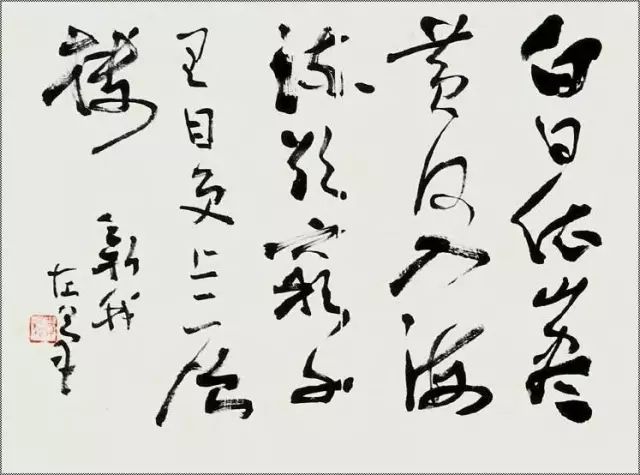 白日依山盡
黄河入海
流欲窮千
里目更上一层
楼
新我
左笔